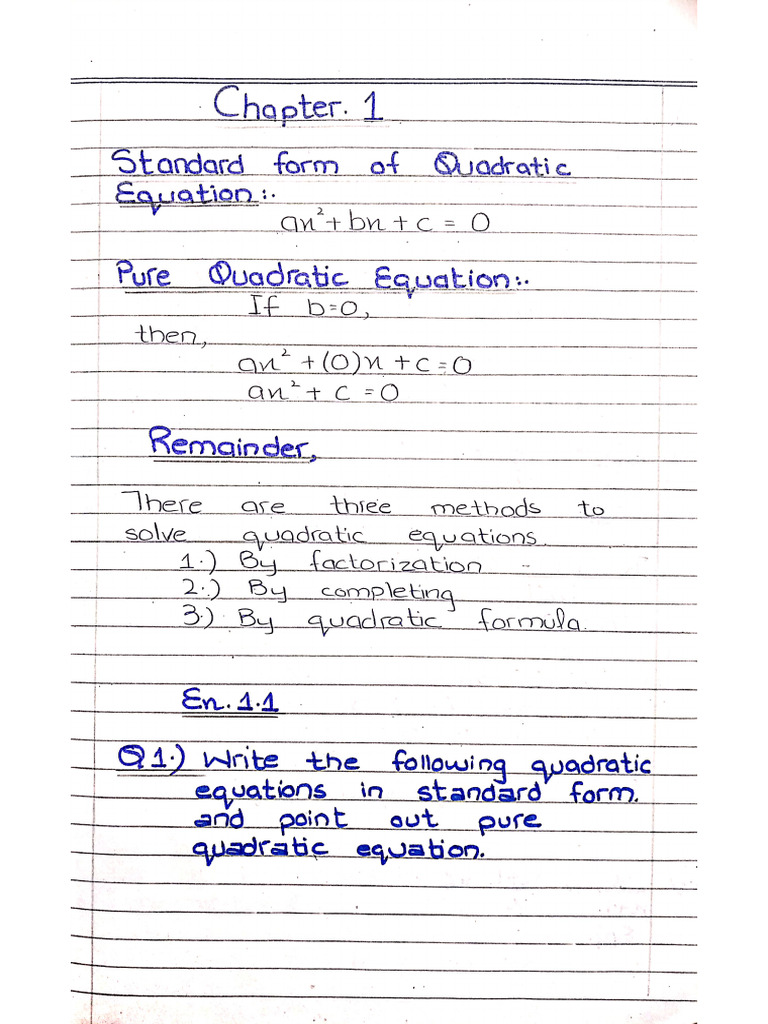 Chapter. 1
Standard form of Quadratic
Equation:.
an² + bn + c = 0
Pure Quadratic Equation:.
If b=0,
then,
an² + (0)n + c = 0
an² + c = 0
Remainder,
There are three methods to
solve quadratic equations.
1.) By factorization
2.) By completing
3.) By quadratic formula.
En. 1.1
Q1.) Write the following quadratic
equations in standard form.
and point out pure
quadratic equation.